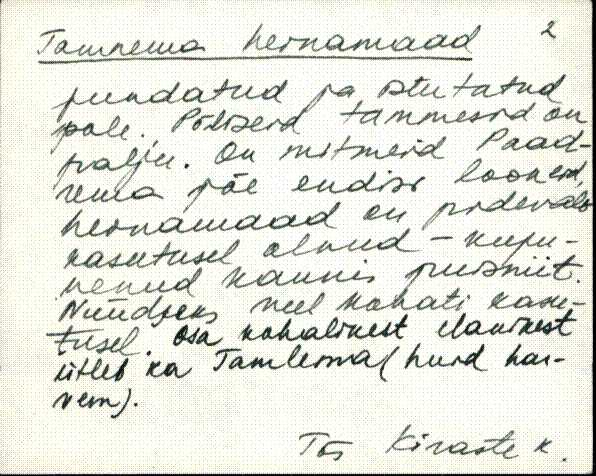 Tamnema heinamaad 2
puudatud ja istutatud
pole. Põliseid tammesid on
palju. On mitmeid Paad-
rema jõe endisi lookeid,
heinamaad on pidevalt
kasutusel olnud – kuju-
nenud kaunis puisniit.
Nüüdseks veel kohati kasu-
tusel. Osa kohalikest elanikest
ütleb ka Tamlema (kuid har-
vem).
Tõs Kiraste k.